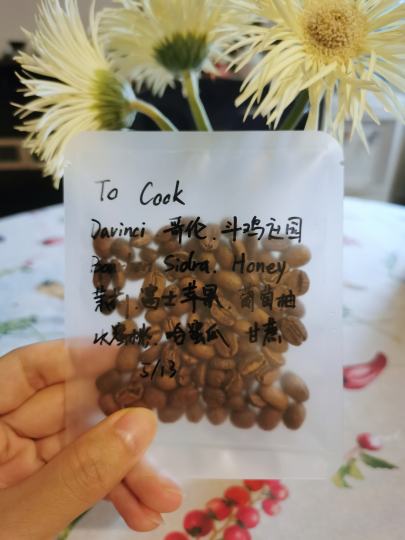 To Cook
Davinci 哥伦. 斗鸡庄园
Sidra. Honey
茉莉. 富士苹果. 葡萄柚
水蜜桃. 哈蜜瓜 甘蔗
5/13.